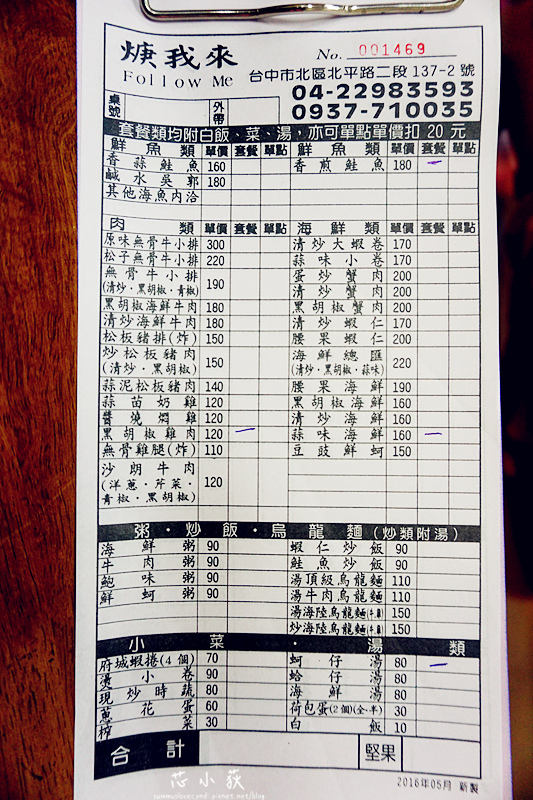 焿我來
Follow Me
No. 001469
台中市北區北平路二段137-2號
04-22983593
0937-710035
桌號
外帶
套餐類均附白飯、菜、湯，亦可單點單價扣 20 元
鮮魚類 單價 套餐 單點 鮮魚類 單價 套餐 單點
香蒜鮭魚 160 香煎鮭魚 180
鹹水吳郭 180
其他海魚內洽
肉類 單價 套餐 單點 海鮮類 單價 套餐 單點
原味無骨牛小排 300 清炒大蝦卷 170
松子無骨牛小排 220 蒜味小卷 170
無骨牛小排 (清炒·黑胡椒·青椒) 190 蛋炒蟹肉 200
清炒蟹肉 200
黑胡椒海鮮牛肉 180 黑胡椒蟹肉 200
清炒海鮮牛肉 180 清炒蝦仁 170
松板豬排(炸) 150 腰果蝦仁 200
炒松板豬肉 (清炒·黑胡椒) 150 海鮮總匯 (清炒·黑胡椒·蒜味) 220
蒜泥松板豬肉 140 腰果海鮮 190
蒜苗奶雞 120 黑胡椒海鮮 160
醬燒燜雞 120 清炒海鮮 160
黑胡椒雞肉 120 蒜味海鮮 160
無骨雞腿(炸) 110 豆豉鮮蚵 150
沙朗牛肉 (洋蔥·芹菜·青椒·黑胡椒) 120
粥·炒飯·烏龍麵(炒類附湯)
海鮮粥 90 蝦仁炒飯 90
牛肉粥 90 鮭魚炒飯 90
鮑味粥 90 湯頂級烏龍麵 110
鮮蚵粥 90 湯牛肉烏龍麵 110
湯海陸烏龍麵 150
炒海陸烏龍麵 150
小菜·湯類
府城蝦捲(4個) 70 蚵仔湯 80
燙小卷 90 蛤仔湯 80
現炒時蔬 80 海鮮湯 80
蔥花蛋 60 荷包蛋(2個)(全·半) 30
榨菜 30 白飯 10
合計
堅果
2016年05月 新製
芯小荻